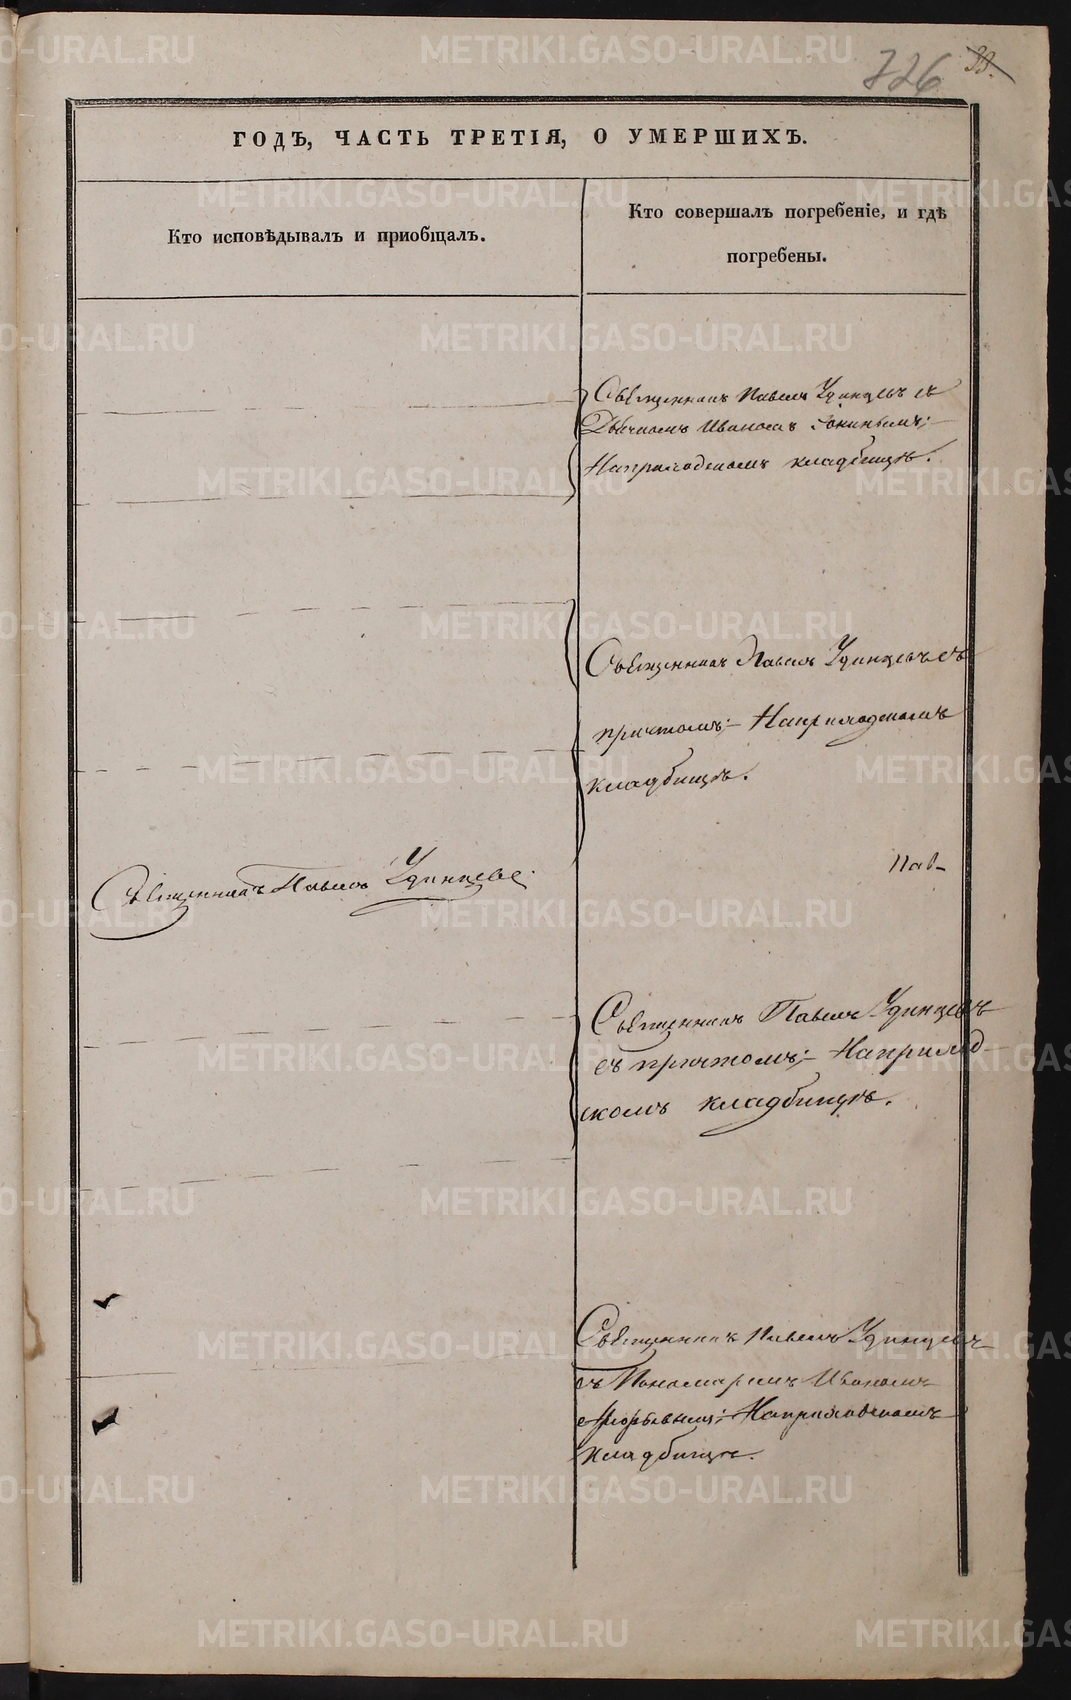 726 33.
ГОДЪ, ЧАСТЬ ТРЕТІЯ, О УМЕРШИХЪ.
Кто исповѣдывалъ и пріобщалъ.
Кто совершалъ погребеніе, и гдѣ
погребены.
Священникъ Павелъ Удинцевъ съ
Дьячкомъ Иваномъ
На приходскомъ кладбищѣ.
Священникъ Павелъ Удинцевъ съ
причтомъ; На приходскомъ
кладбищѣ.
Священникъ Павелъ Удинцевъ.
Пав-
Священникъ Павелъ Удинцевъ
съ причтомъ; На приход-
скомъ кладбищѣ.
Священникъ Павелъ Удинцевъ
съ Пономаремъ Иваномъ
На приходскомъ
кладбищѣ.
METRIKI.GASO-URAL.RU